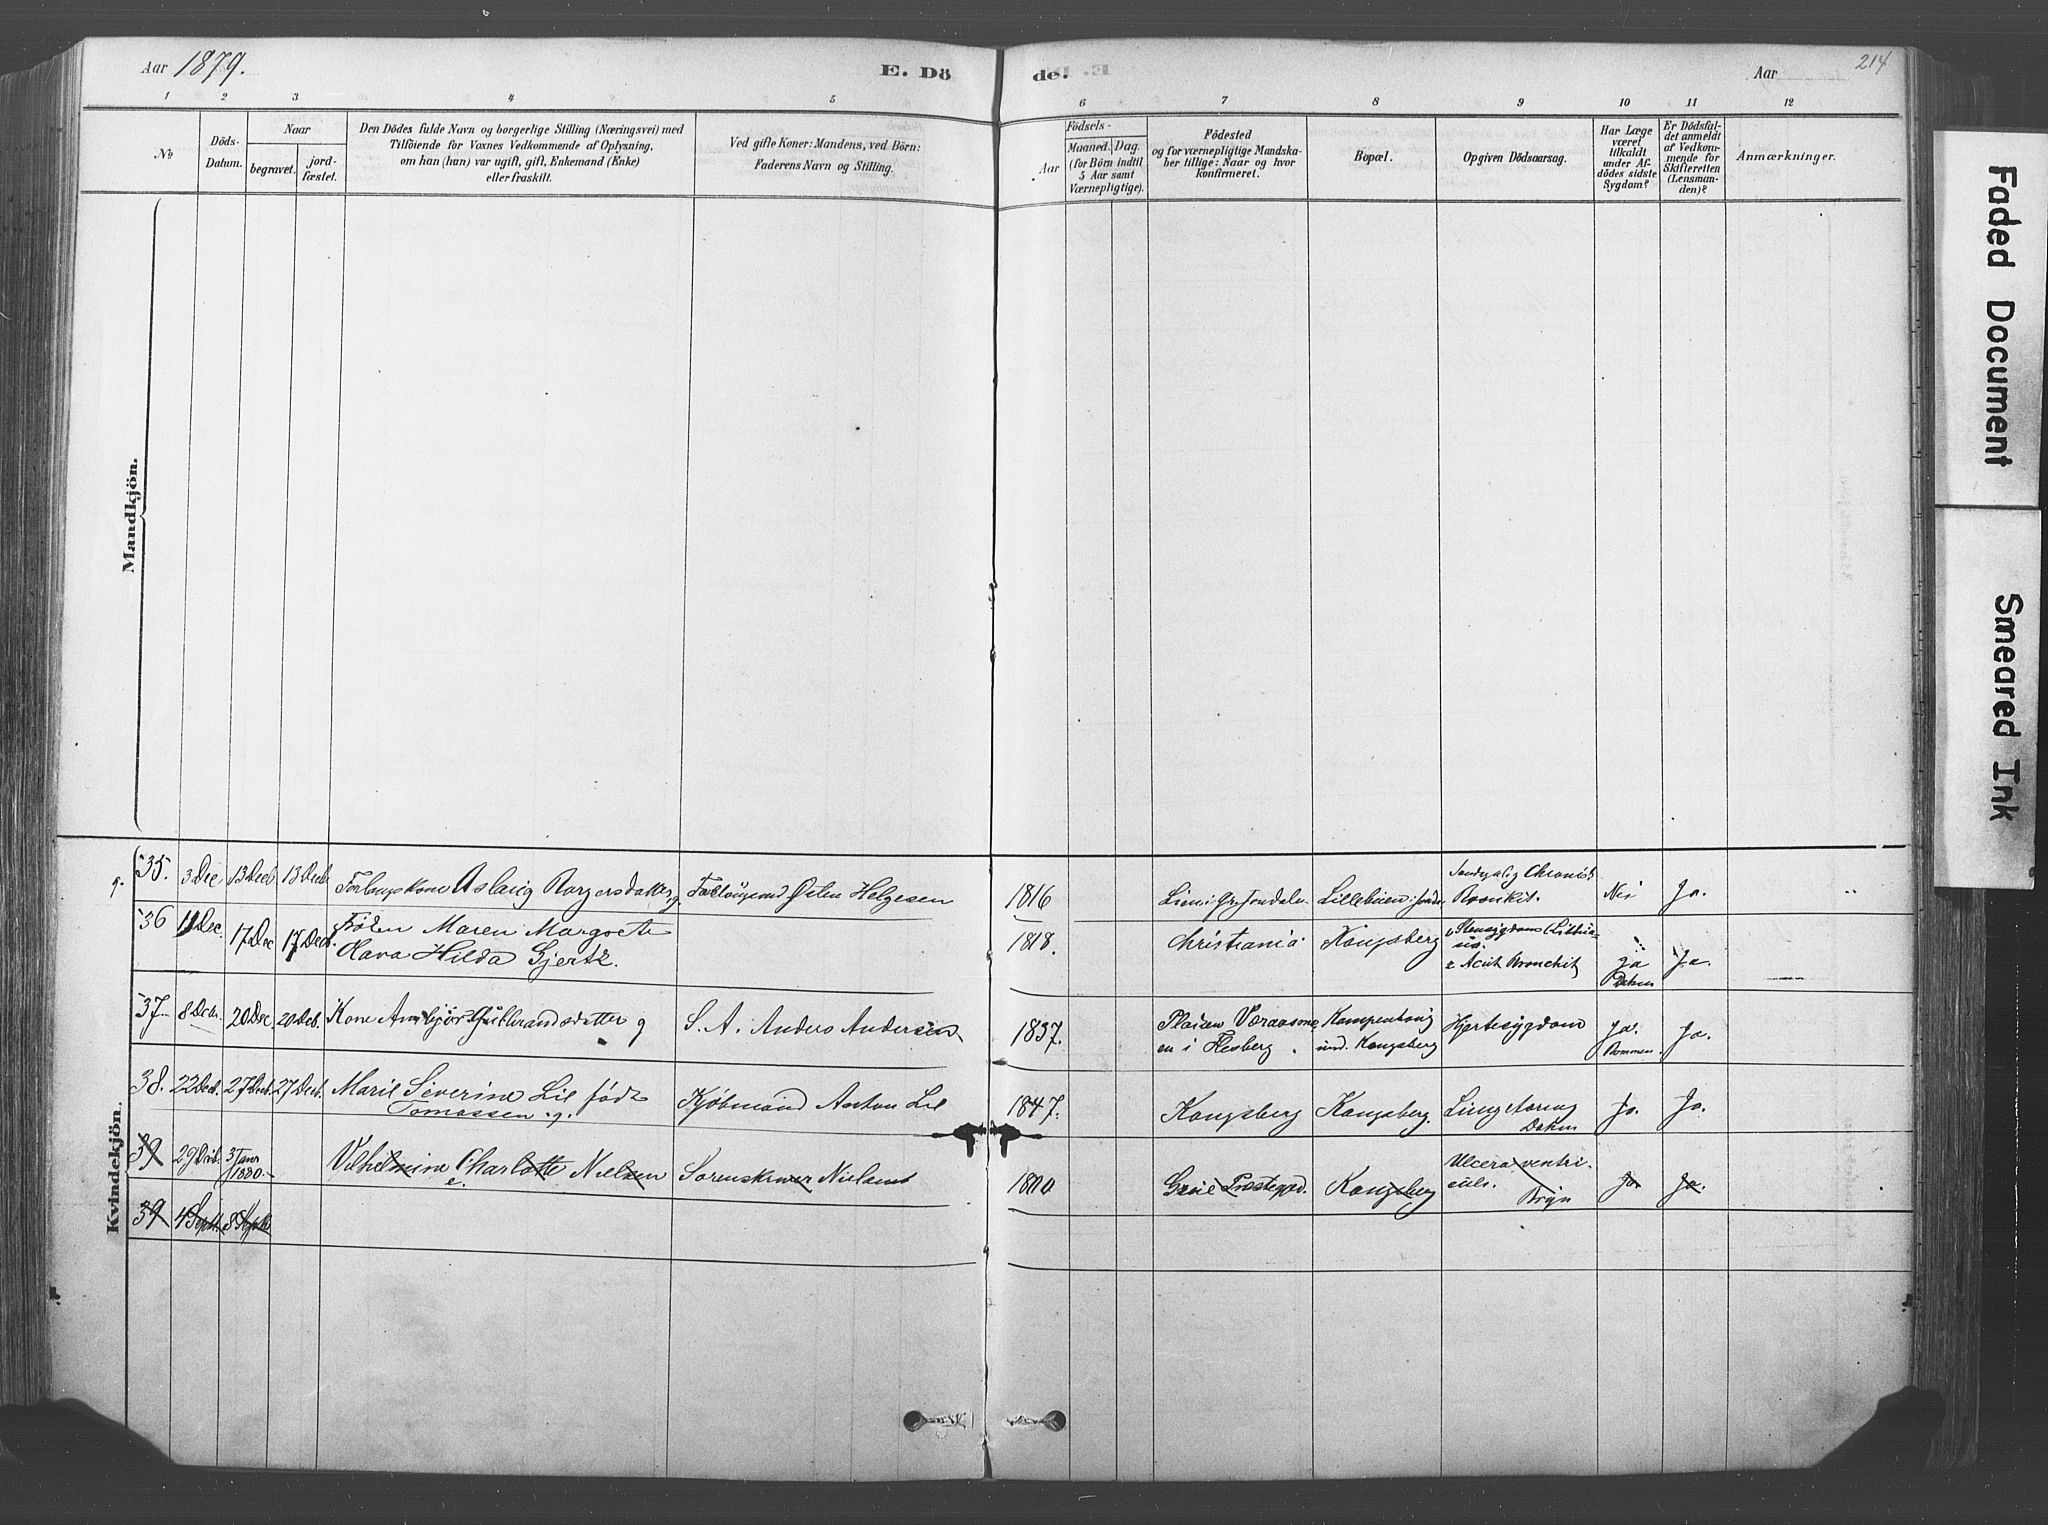 Aar 1879.
E. Dö
de.
Aar
214
1 2 3 4 5 6 7 8 9 10 11 12
No
Döds-
Datum.
Naar
begravet.
jord-
fæstet.
Den Dödes fulde Navn og borgerlige Stilling (Næringsvei) med
Tilföiende for Voxnes Vedkommende af Oplysning,
om han (hun) var ugift, gift, Enkemand (Enke)
eller fraskilt.
Ved gifte Koner: Mandens, ved Börn:
Faderens Navn og Stilling.
Födsels-
Aar
Maaned.
Dag.
(for Börn indtil
5 Aar samt
Værnepligtige).
Födested
og for værnepligtige Mandska-
ber tillige: Naar og hvor
konfirmeret.
Bopæl.
Opgiven Dödsaarsag.
Har Læge
været
tilkaldt
under Af-
dödes sidste
Sygdom?
Er Dödsfal-
det anmeldt
af Vedkom-
mende for
Skifteretten
(Lensman-
den)?
Anmærkninger.
Mandkjön.
Kvindekjön.
35. 3 Dec 13 Decb 13 Decb Aslaug g. Østen Helgesen 1816 Nei Ja.
36 11 Dec. 17 Dec 17 Decb. Frøken Maren Margrete
Hilda Gjertz. 1818. Christiania Kongsberg
2 Acut Bronchit Ja Ja.
37 8 Decb. 20 Dec 20 Deb. Kone Gulbrandsdatter g S. A. Anders Andersen 1837.
i Flesberg. und. Kongsberg Hjertesygdom Ja. Ja.
38. 22 Decb. 27 Decb. 27 Decb. Marie Severine Lie født
Tomassen. g. Kjøbmand Anton Lie 1847. Kongsberg Kongsberg. Ja. Ja.
39 29 Decb. 3 Janr
1880 Vilhelmine Charlotte Nielsen
e. Sorenskriver Nielsens Kongsberg Ulcera ventri-
culi. Ja Ja.
39 4 Septb. 8 Septb.
Faded Document
Smeared Ink